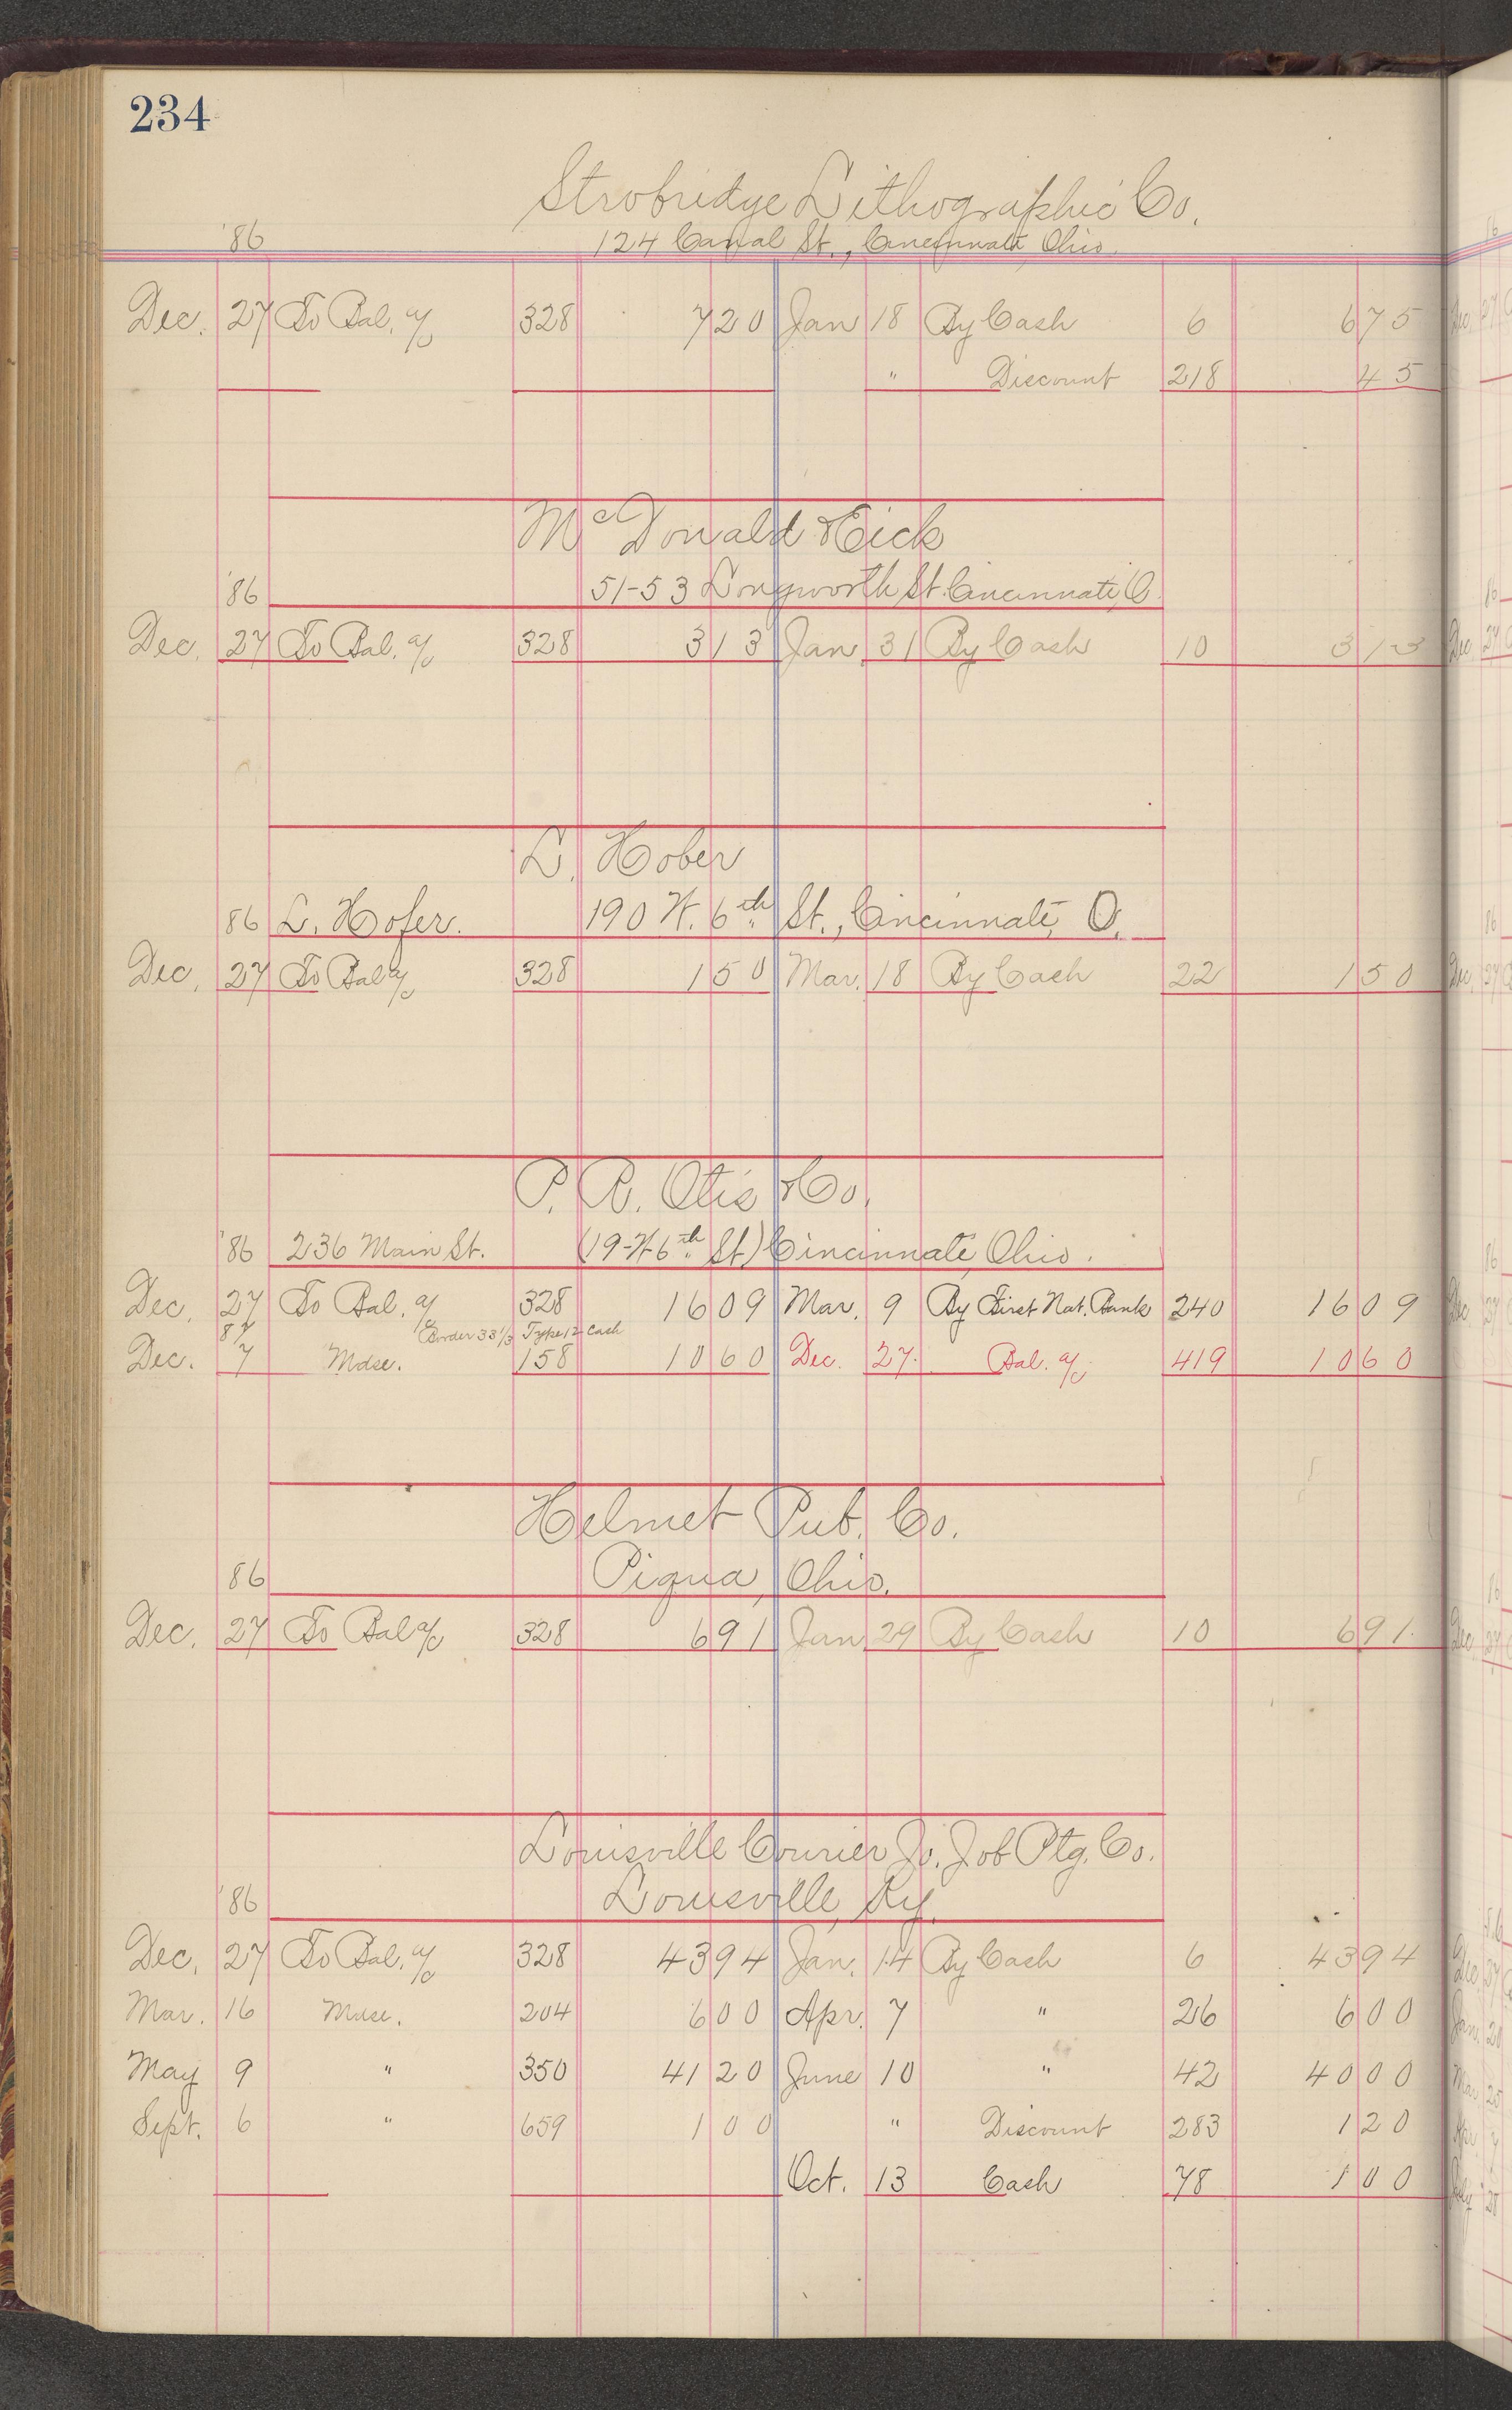 234
Strobridge Lithographic Co.
'86 124 Canal St., Cincinnati Ohio.
Dec. 27 To Bal. a/c 328 720 Jan 18 By Cash 6 675
" Discount 218 45
McDonald & Eick
'86 51-53 Longworth St. Cincinnati, O.
Dec. 27 To Bal. a/c 328 313 Jan. 31 By Cash 10 313
L. Hober
86 L. Hofer. 190 W. 6th St., Cincinnati, O.
Dec. 27 To Bal a/c 328 150 Mar. 18 By Cash 22 150
P. R. Otis & Co.
'86 236 Main St. (19-W 6th St) Cincinnati, Ohio.
Dec. 27 To Bal. a/c 328 1609 Mar. 9 By First Nat. Bank 240 1609
87 Border 33 1/3 Type 12 Cash
Dec. 7 Mdse. 158 1060 Dec. 27. Bal. a/c 419 1060
Helmet Pub. Co.
86 Piqua, Ohio.
Dec. 27 To Bal a/c 328 691 Jan 29 By Cash 10 691.
Louisville Courier Jo. Job Ptg. Co.
'86 Louisville, Ky.
Dec. 27 To Bal. a/c 328 4394 Jan. 14 By Cash 6 4394
Mar. 16 Mdse. 204 600 Apr. 7 " 26 600
May 9 " 350 4120 June 10 " 42 4000
Sept. 6 " 659 100 " Discount 283 120
Oct. 13 Cash 78 100